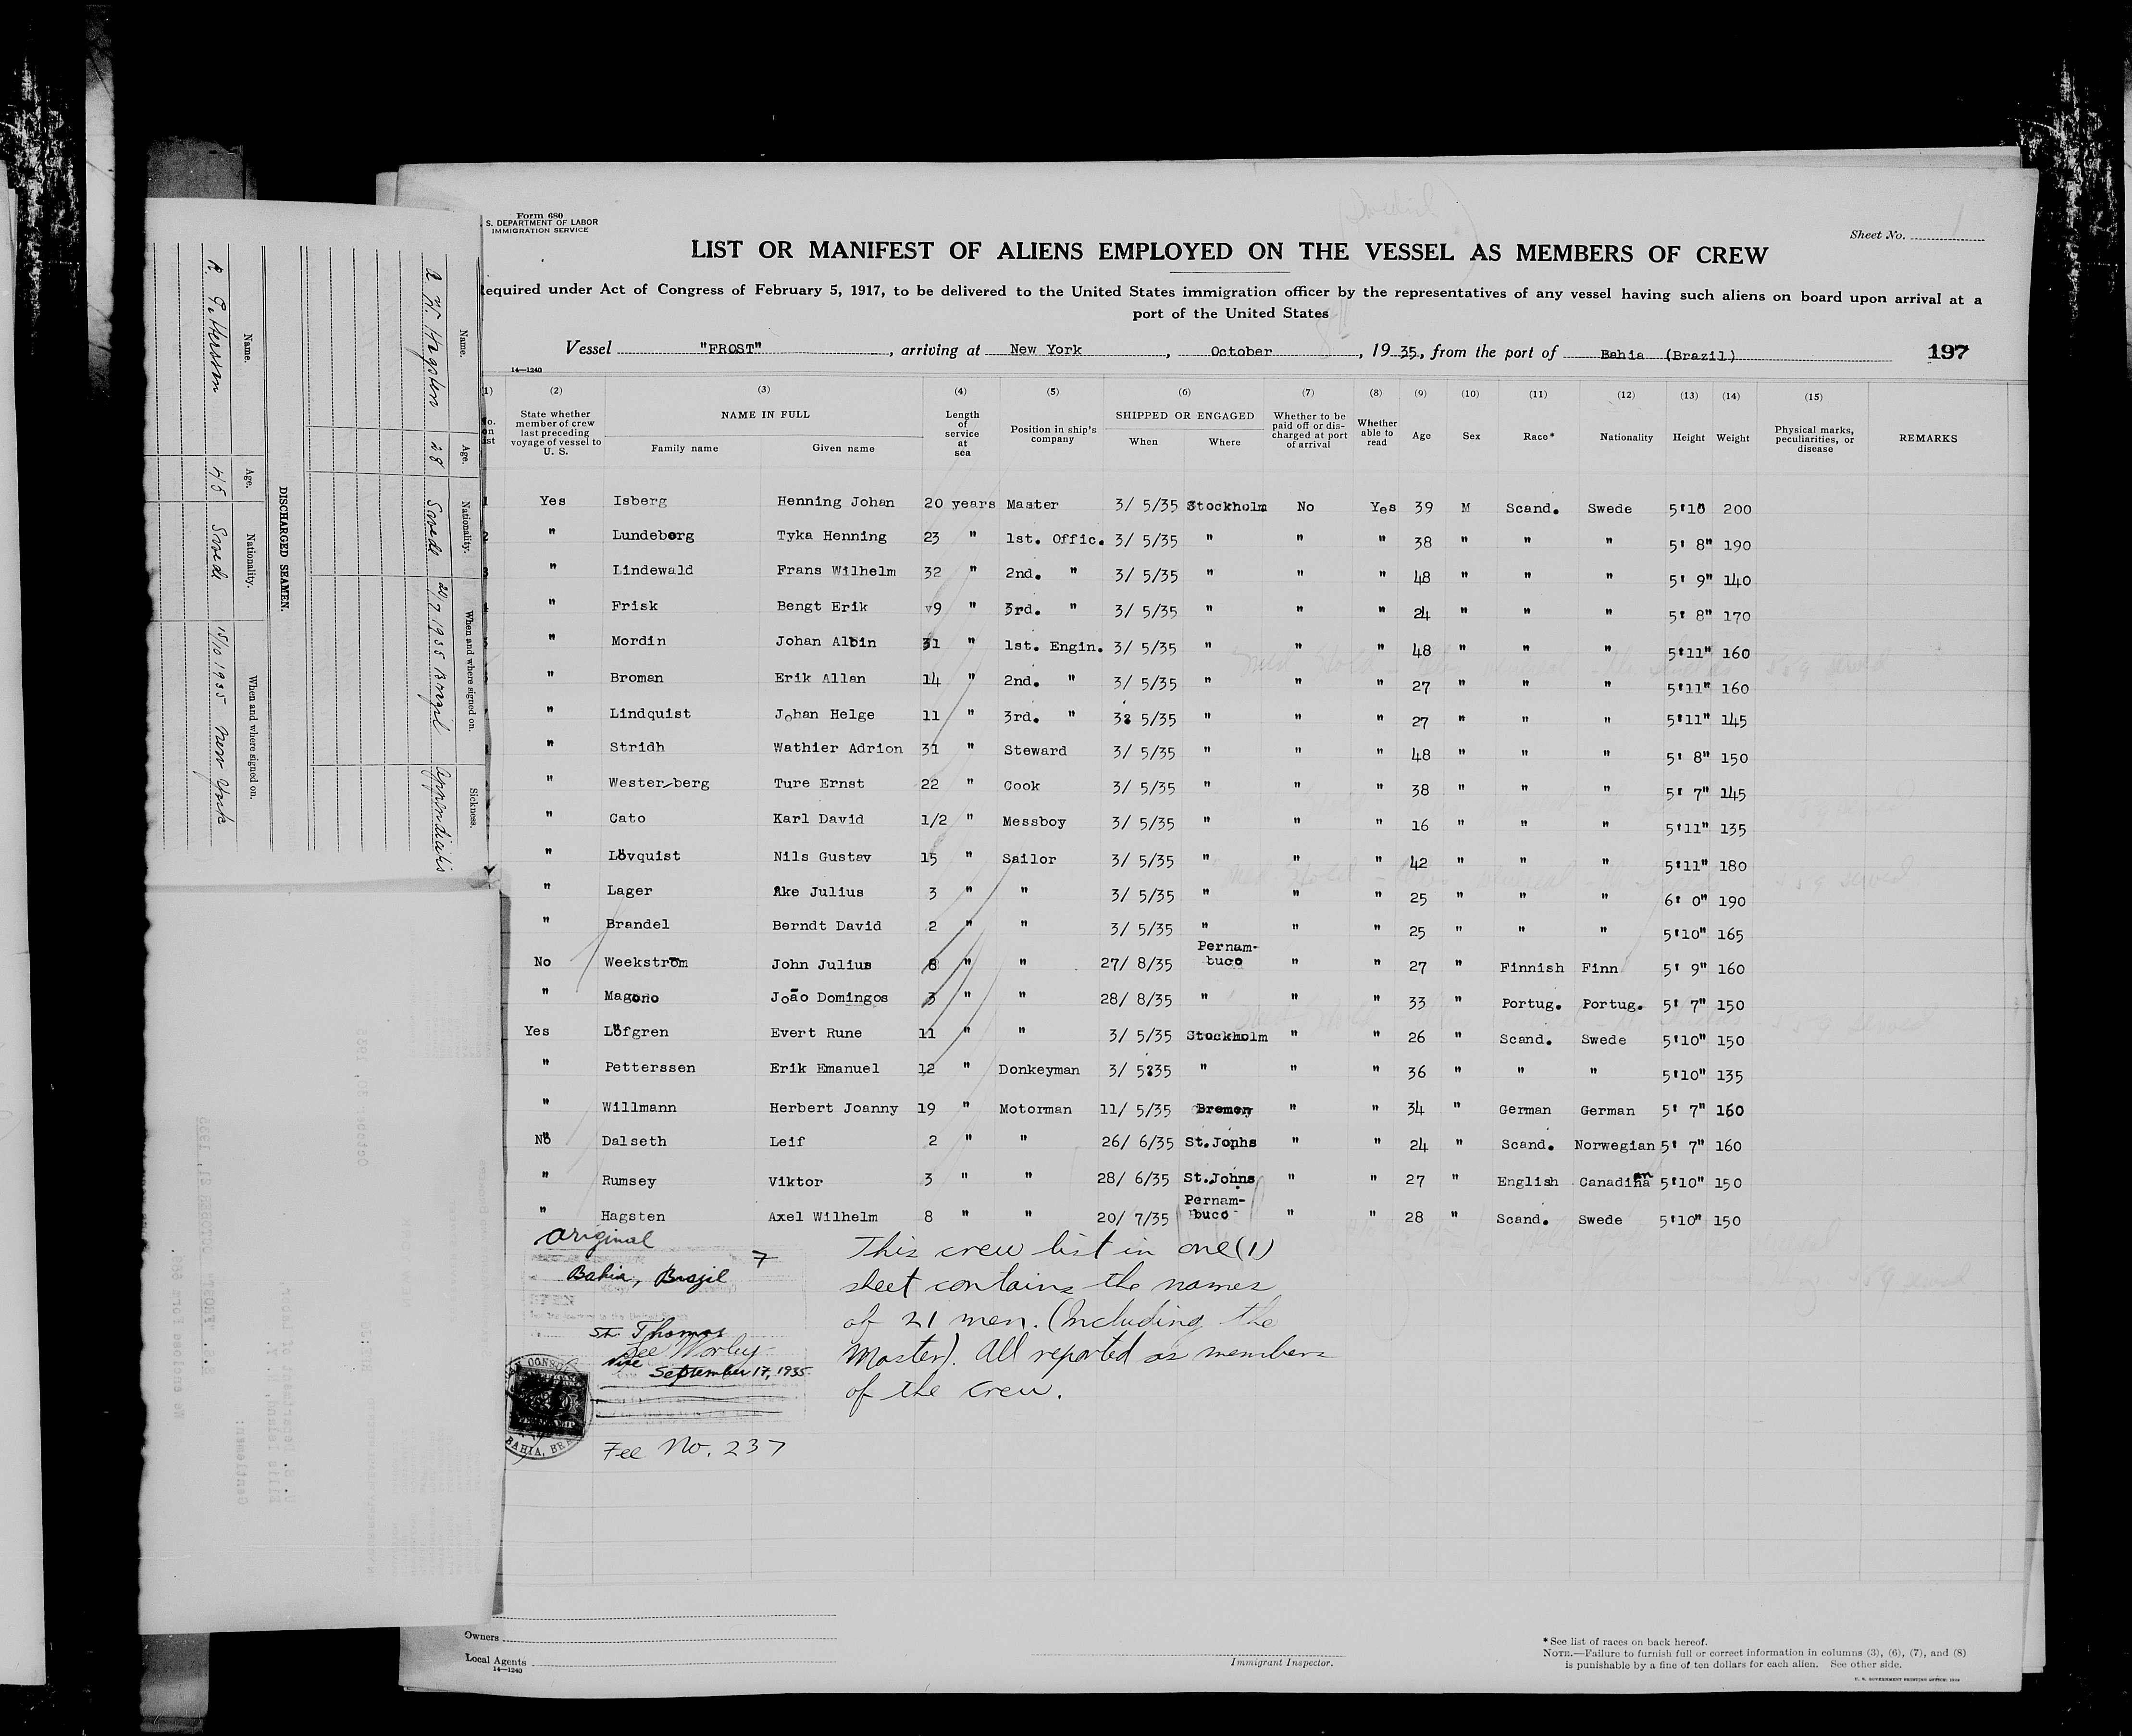 Form 680
S. DEPARTMENT OF LABOR
IMMIGRATION SERVICE
Sheet No. 1
LIST OR MANIFEST OF ALIENS EMPLOYED ON THE VESSEL AS MEMBERS OF CREW
equired under Act of Congress of February 5, 1917, to be delivered to the United States immigration officer by the representatives of any vessel having such aliens on board upon arrival at a
port of the United States
Vessel "FROST", arriving at New York, October, 19 35, from the port of Bahia (Brazil) 197
14—1240
(1) (2) (3) (4) (5) (6) (7) (8) (9) (10) (11) (12) (13) (14) (15)
No. on list State whether member of crew last preceding voyage of vessel to U. S. NAME IN FULL Family name Given name Length of service at sea Position in ship's company SHIPPED OR ENGAGED When Where Whether to be paid off or discharged at port of arrival Whether able to read Age Sex Race* Nationality Height Weight Physical marks, peculiarities, or disease REMARKS
1 Yes Isberg Henning Johan 20 years Master 3/ 5/35 Stockholm No Yes 39 M Scand. Swede 5'10" 200
2 " Lundeborg Tyka Henning 23 " 1st. Offic. 3/ 5/35 " " " 38 " " " 5' 8" 190
3 " Lindewald Frans Wilhelm 32 " 2nd. " 3/ 5/35 " " " 48 " " " 5' 9" 140
" Frisk Bengt Erik 9 " 3rd. " 3/ 5/35 " " " 24 " " " 5' 8" 170
" Mordin Johan Albin 31 " 1st. Engin. 3/ 5/35 " " " 48 " " " 5'11" 160
" Broman Erik Allan 14 " 2nd. " 3/ 5/35 " " " 27 " " " 5'11" 160
" Lindquist Johan Helge 11 " 3rd. " 3 5/35 " " " 27 " " " 5'11" 145
" Stridh Wathier Adrion 31 " Steward 3/ 5/35 " " " 48 " " " 5' 8" 150
" Westerberg Ture Ernst 22 " Cook 3/ 5/35 " " " 38 " " " 5' 7" 145
" Cato Karl David 1/2 " Messboy 3/ 5/35 " " " 16 " " " 5'11" 135
" Lövquist Nils Gustav 15 " Sailor 3/ 5/35 " " " 42 " " " 5'11" 180
" Lager Åke Julius 3 " " 3/ 5/35 " " " 25 " " " 6' 0" 190
" Brandel Berndt David 2 " " 3/ 5/35 " " " 25 " " " 5'10" 165
No Weekstrom John Julius 8 " " 27/ 8/35 Pernam-buco " " 27 " Finnish Finn 5' 9" 160
" Magono João Domingos 3 " " 28/ 8/35 " " " 33 " Portug. Portug. 5' 7" 150
Yes Löfgren Evert Rune 11 " " 3/ 5/35 Stockholm " " 26 " Scand. Swede 5'10" 150
" Petterssen Erik Emanuel 12 " Donkeyman 3/ 5?35 " " " 36 " " " 5'10" 135
" Willmann Herbert Joanny 19 " Motorman 11/ 5/35 Bremen " " 34 " German German 5' 7" 160
No Dalseth Leif 2 " " 26/ 6/35 St.Jonhs " " 24 " Scand. Norwegian 5' 7" 160
" Rumsey Viktor 3 " " 28/ 6/35 St.Johns " " 27 " English Canadian 5'10" 150
" Hagsten Axel Wilhelm 8 " " 20/ 7/35 Pernam-buco " " 28 " Scand. Swede 5'10" 150
Original
7
Bahia, Brazil
St. Thomas
Lee Worley
Vice
September 17, 1935
BAHIA, BRA
Fee No. 237
This crew list in one (1)
sheet contains the names
of 21 men. (Including the
Master). All reported as members
of the crew.
Owners
Local Agents
14—1240
Immigrant Inspector.
* See list of races on back hereof.
NOTE.—Failure to furnish full or correct information in columns (3), (6), (7), and (8)
is punishable by a fine of ten dollars for each alien. See other side.
Name. Age. Nationality. When and where signed on. Sickness.
A W. Hagsten 28 Swede 20/7 1935 Brazil Appendicitis
DISCHARGED SEAMEN.
Name. Age. Nationality. When and where signed on.
45 Swede 15/10 1935 New York